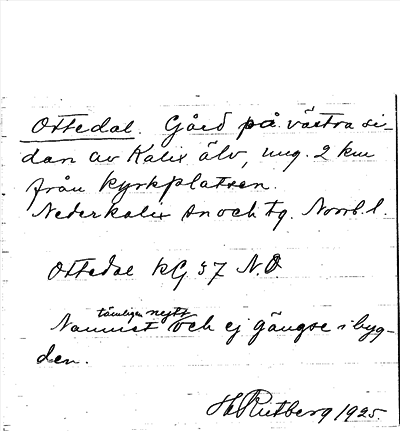 Ottedal. Gård på västra si-
dan av Kalix älv, ung. 2 km
från kyrkplatsen.
Nederkalix sn och tg. Norrb. l.
Ottedal KG 37 N.O.
tämligen nytt
Namnet och ej gängse i byg-
den.
Hl Rutberg 1925.